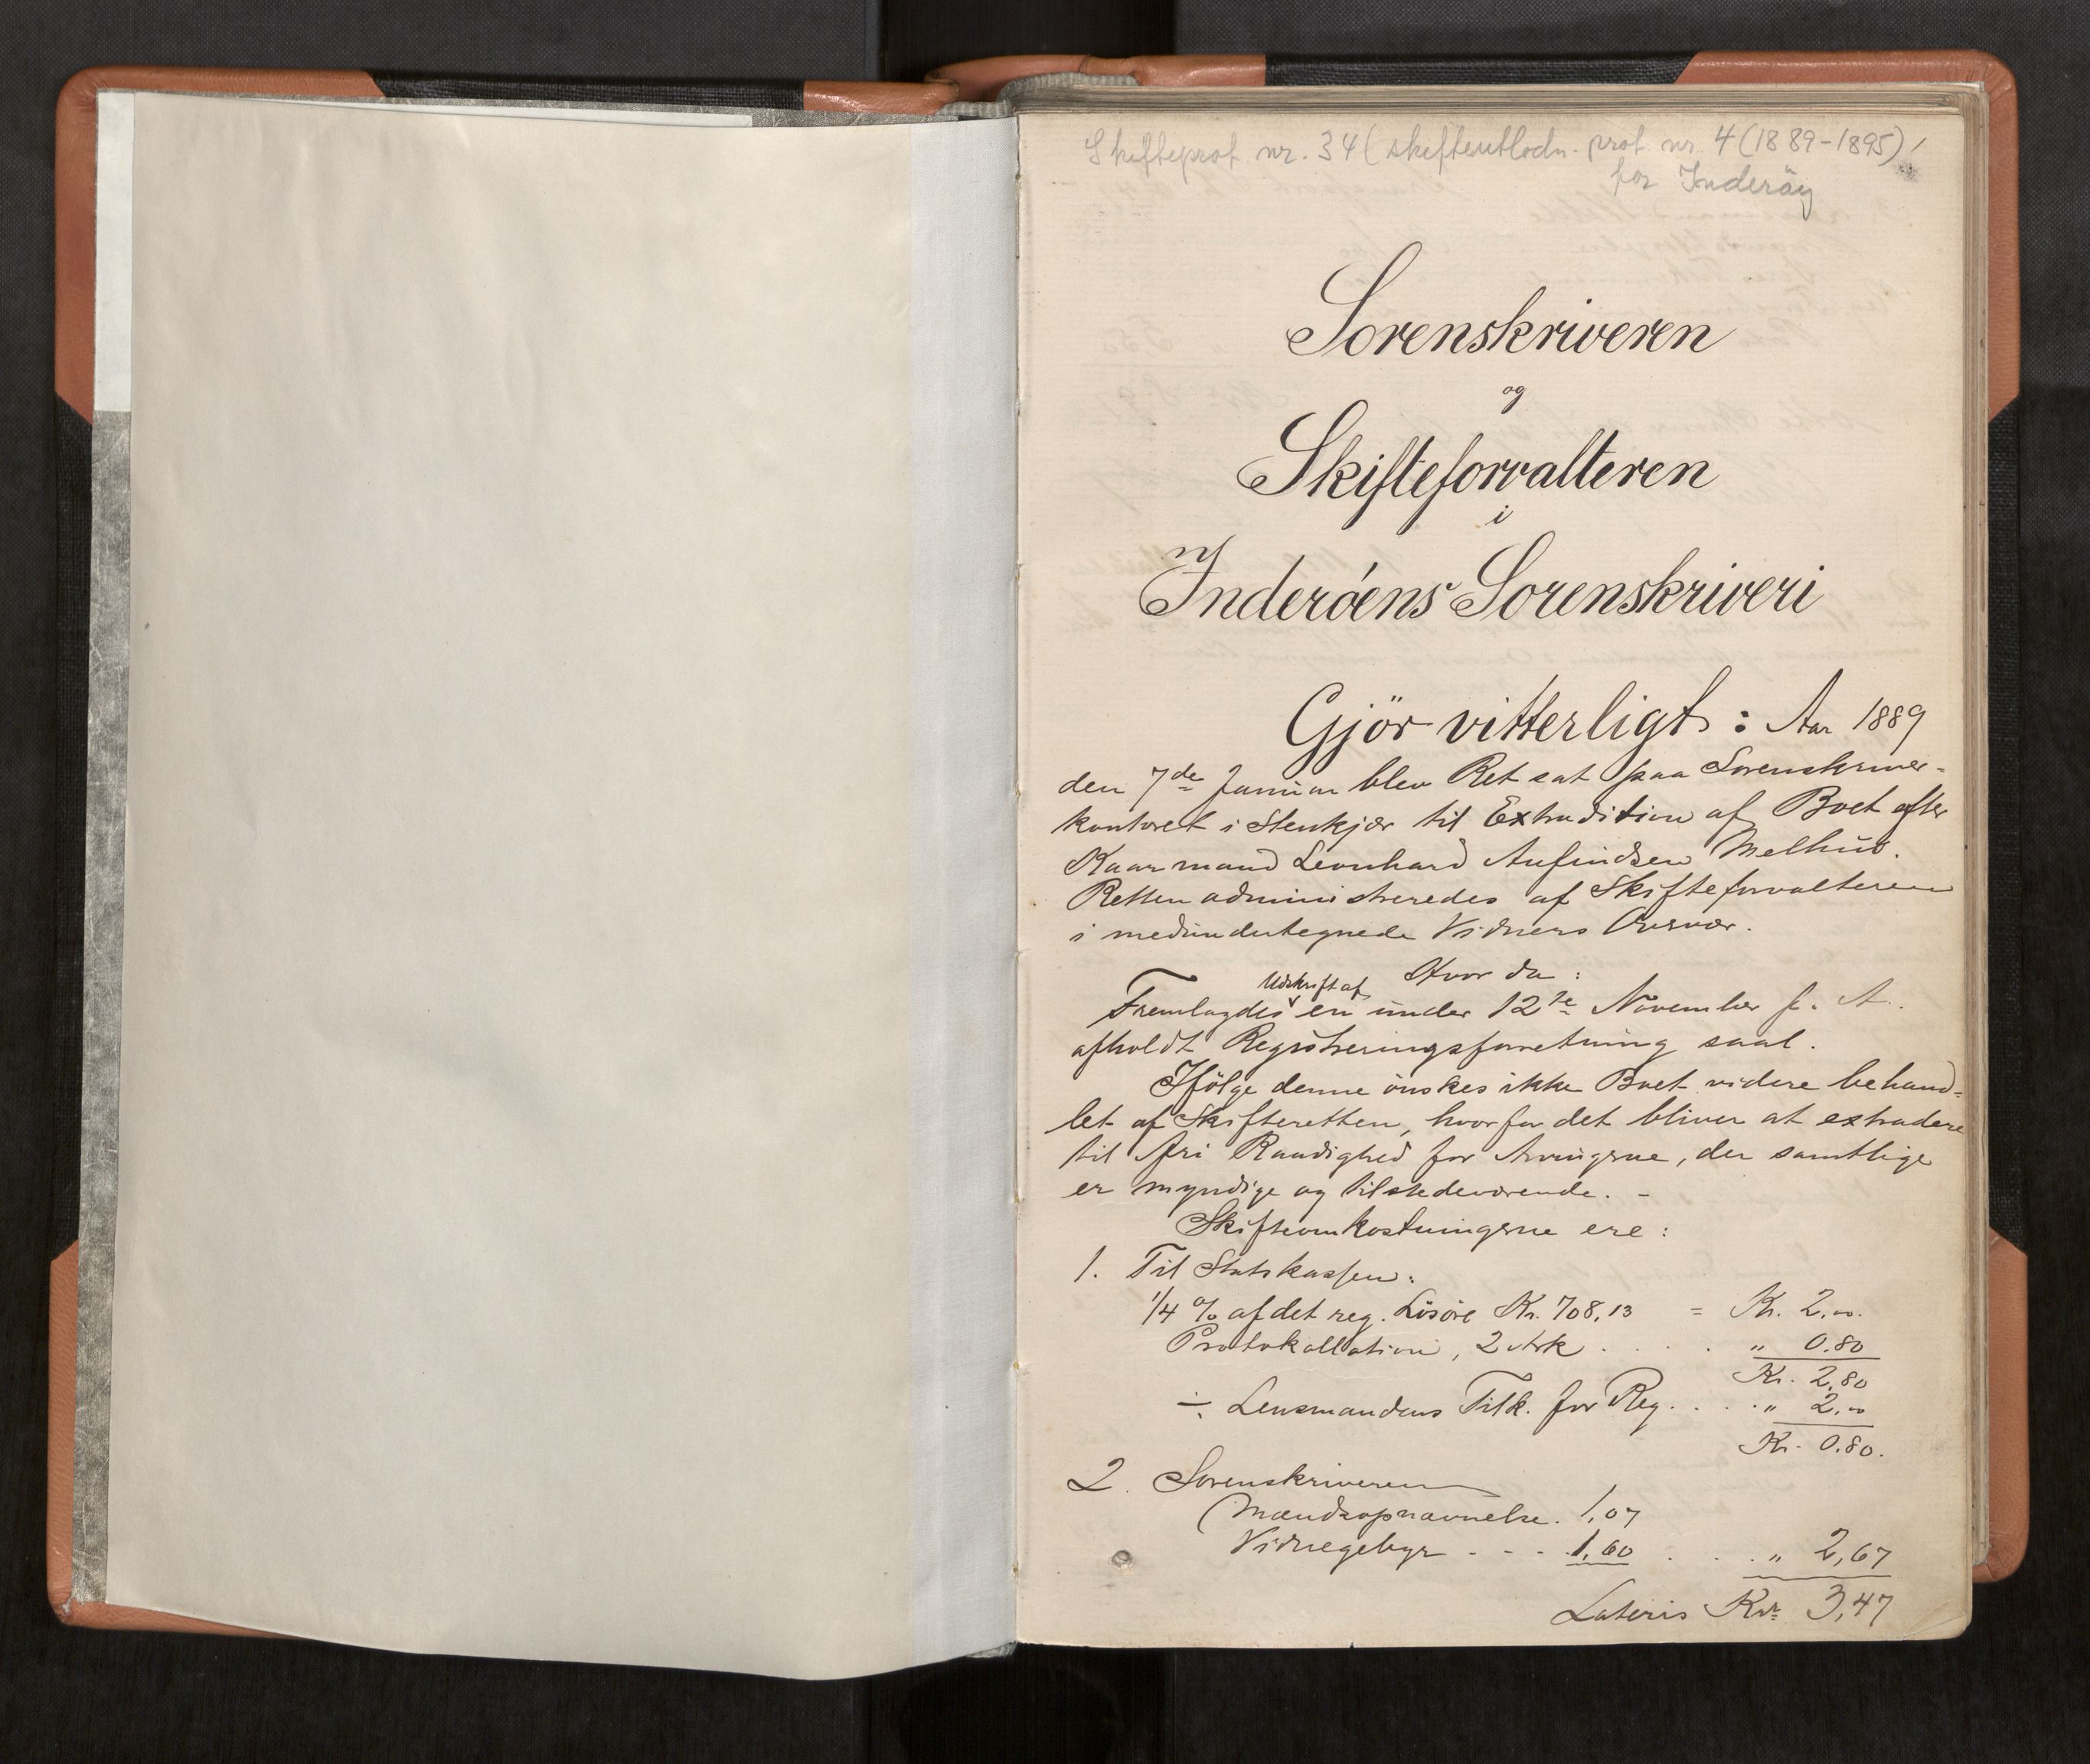 Skifteprot. nr. 34 (skifteutlodn. prot. nr. 4 (1889-1895)
for Inderøy
Sorenskriveren
og
Skifteforvalteren
i
Inderöens Sorenskriveri
Gjör vitterligt: Aar 1889
den 7de Januar blev Ret sat paa Sorenskriver-
kontoret i Stenkjær til Extradition af Boet efter
Kaarmand Leonhard Anfindsen Melhus.
Retten administreredes af Skifteforvalteren
i medundertegnede Vidners Overvær.
Hvorda:
Fremlagdes Udskrift af en under 12te November f. A.
afholdt Registreringsforretning saal.
Ifölge denne önskes ikke Boet videre behand-
let af Skifteretten, hvorfor det bliver at extradere
til fri Raadighed for Arvingerne, der samtlige
er myndige og tilstedeværende. -
Skifteomkostningerne ere:
1. Til Statskassen:
1/4 % af det reg. Lösöre Kr. 708,13 = Kr. 2,00.
Protokollation, 2 Ark . . . . " 0.80
Kr. 2,80
÷ Lensmandens Tilk. for Reg. . . . " 2,00
Kr. 0.80.
2. Sorenskriveren
Mændsopnævnelse. 1,07
Vidnegebyr - - - 1,60 . . . " 2,67
Lateris Kr. 3,47